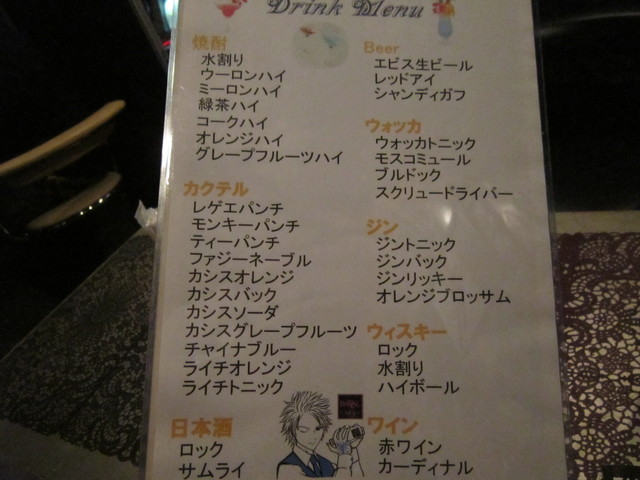 Drink Menu
焼酎
水割り
ウーロンハイ
ミーロンハイ
緑茶ハイ
コークハイ
オレンジハイ
グレープフルーツハイ
カクテル
レゲエパンチ
モンキーパンチ
ティーパンチ
ファジーネーブル
カシスオレンジ
カシスバック
カシスソーダ
カシスグレープフルーツ
チャイナブルー
ライチオレンジ
ライチトニック
日本酒
ロック
サムライ
Beer
エビス生ビール
レッドアイ
シャンディガフ
ウォッカ
ウォッカトニック
モスコミュール
ブルドック
スクリュードライバー
ジン
ジントニック
ジンバック
ジンリッキー
オレンジブロッサム
ウィスキー
ロック
水割り
ハイボール
ワイン
赤ワイン
カーディナル